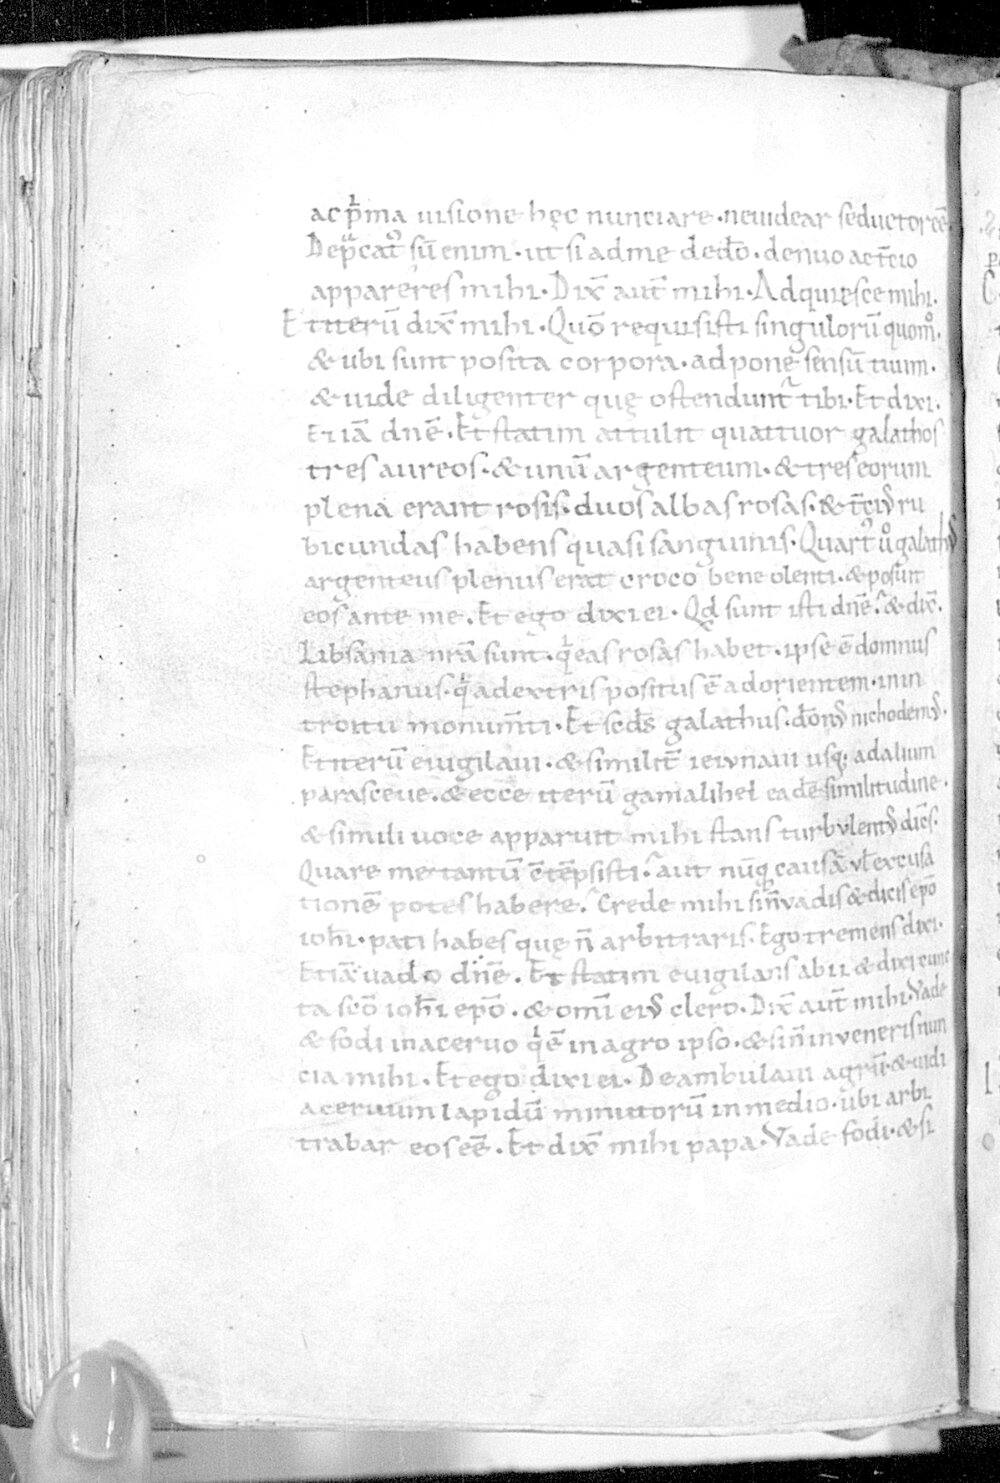 ac pͥma uisione hęc nunciare · ne uidear seductor eē ·
Dep̄catꝰ sū enim · ut si ad me dedō · denuo ac t̄cio
appareres mihi · Dix̄ aut̄ mihi · Adquiesce mihi ·
Et iterū dix̄ mihi · Quō requisisti singulorū quom̊ ·
& ubi sunt posita corpora · adpone sensū tuum ·
& uide diligenter quę ostendunt᷑ tibi · Et dixi ·
Etiā dn̄e · Et statim attulit quattuor galathos
tres aureos · & unū argenteum · & tres eorum
plena erant rosis · duos albas rosas · & t̄ciꝰ ru
bicundas habens quasi sanguinis · Quartꝰ ů galathꝰ
argenteus plenus erat croco bene olenti · & posuit
eos ante me · Et ego dixi ei · Qd̄ sunt isti dn̄e ? & dix̄ ·
Libsama nrā sunt · qͥ eas rosas habet · ipse ē domnus
stephanus · qͥ a dextris positus ē ad orientem · in in
troitu monum̄ti · Et sed̄s galathus · dōnꝰ nichodemꝰ ·
Et iterū euigilaui · & similit̄ ieiunaui usq; ad alium
parasceue · & ecce iterū gamalihel eadē similitudine ·
& simili uoce apparuit mihi stans turbulentꝰ dicēs ·
Quare me tantū c̄tēpsisti ? aut nūq causā ul̄ excusa
tionē potes habere ? Crede mihi si n̄ vadis & dicis epō
ioh̄i · pati habes quę n̄ arbitraris · Ego tremens dixi ·
Etiā uado dn̄e · Et statim euigilans abii & dixi cunc
ta scō ioh̄i epō · & omī eiꝰ clero · Dix̄ aut̄ mihi · Vade
& fodi in aceruo qͥ ē in agro ipso · & si n̄ inveneris nun
cia mihi · Et ego dixi ei · Deambulaui agrū · & uidi
aceruum lapidū minutorū in medio · ubi arbi
trabar eos eē · Et dix̄ mihi papa · Vade fodi · & si